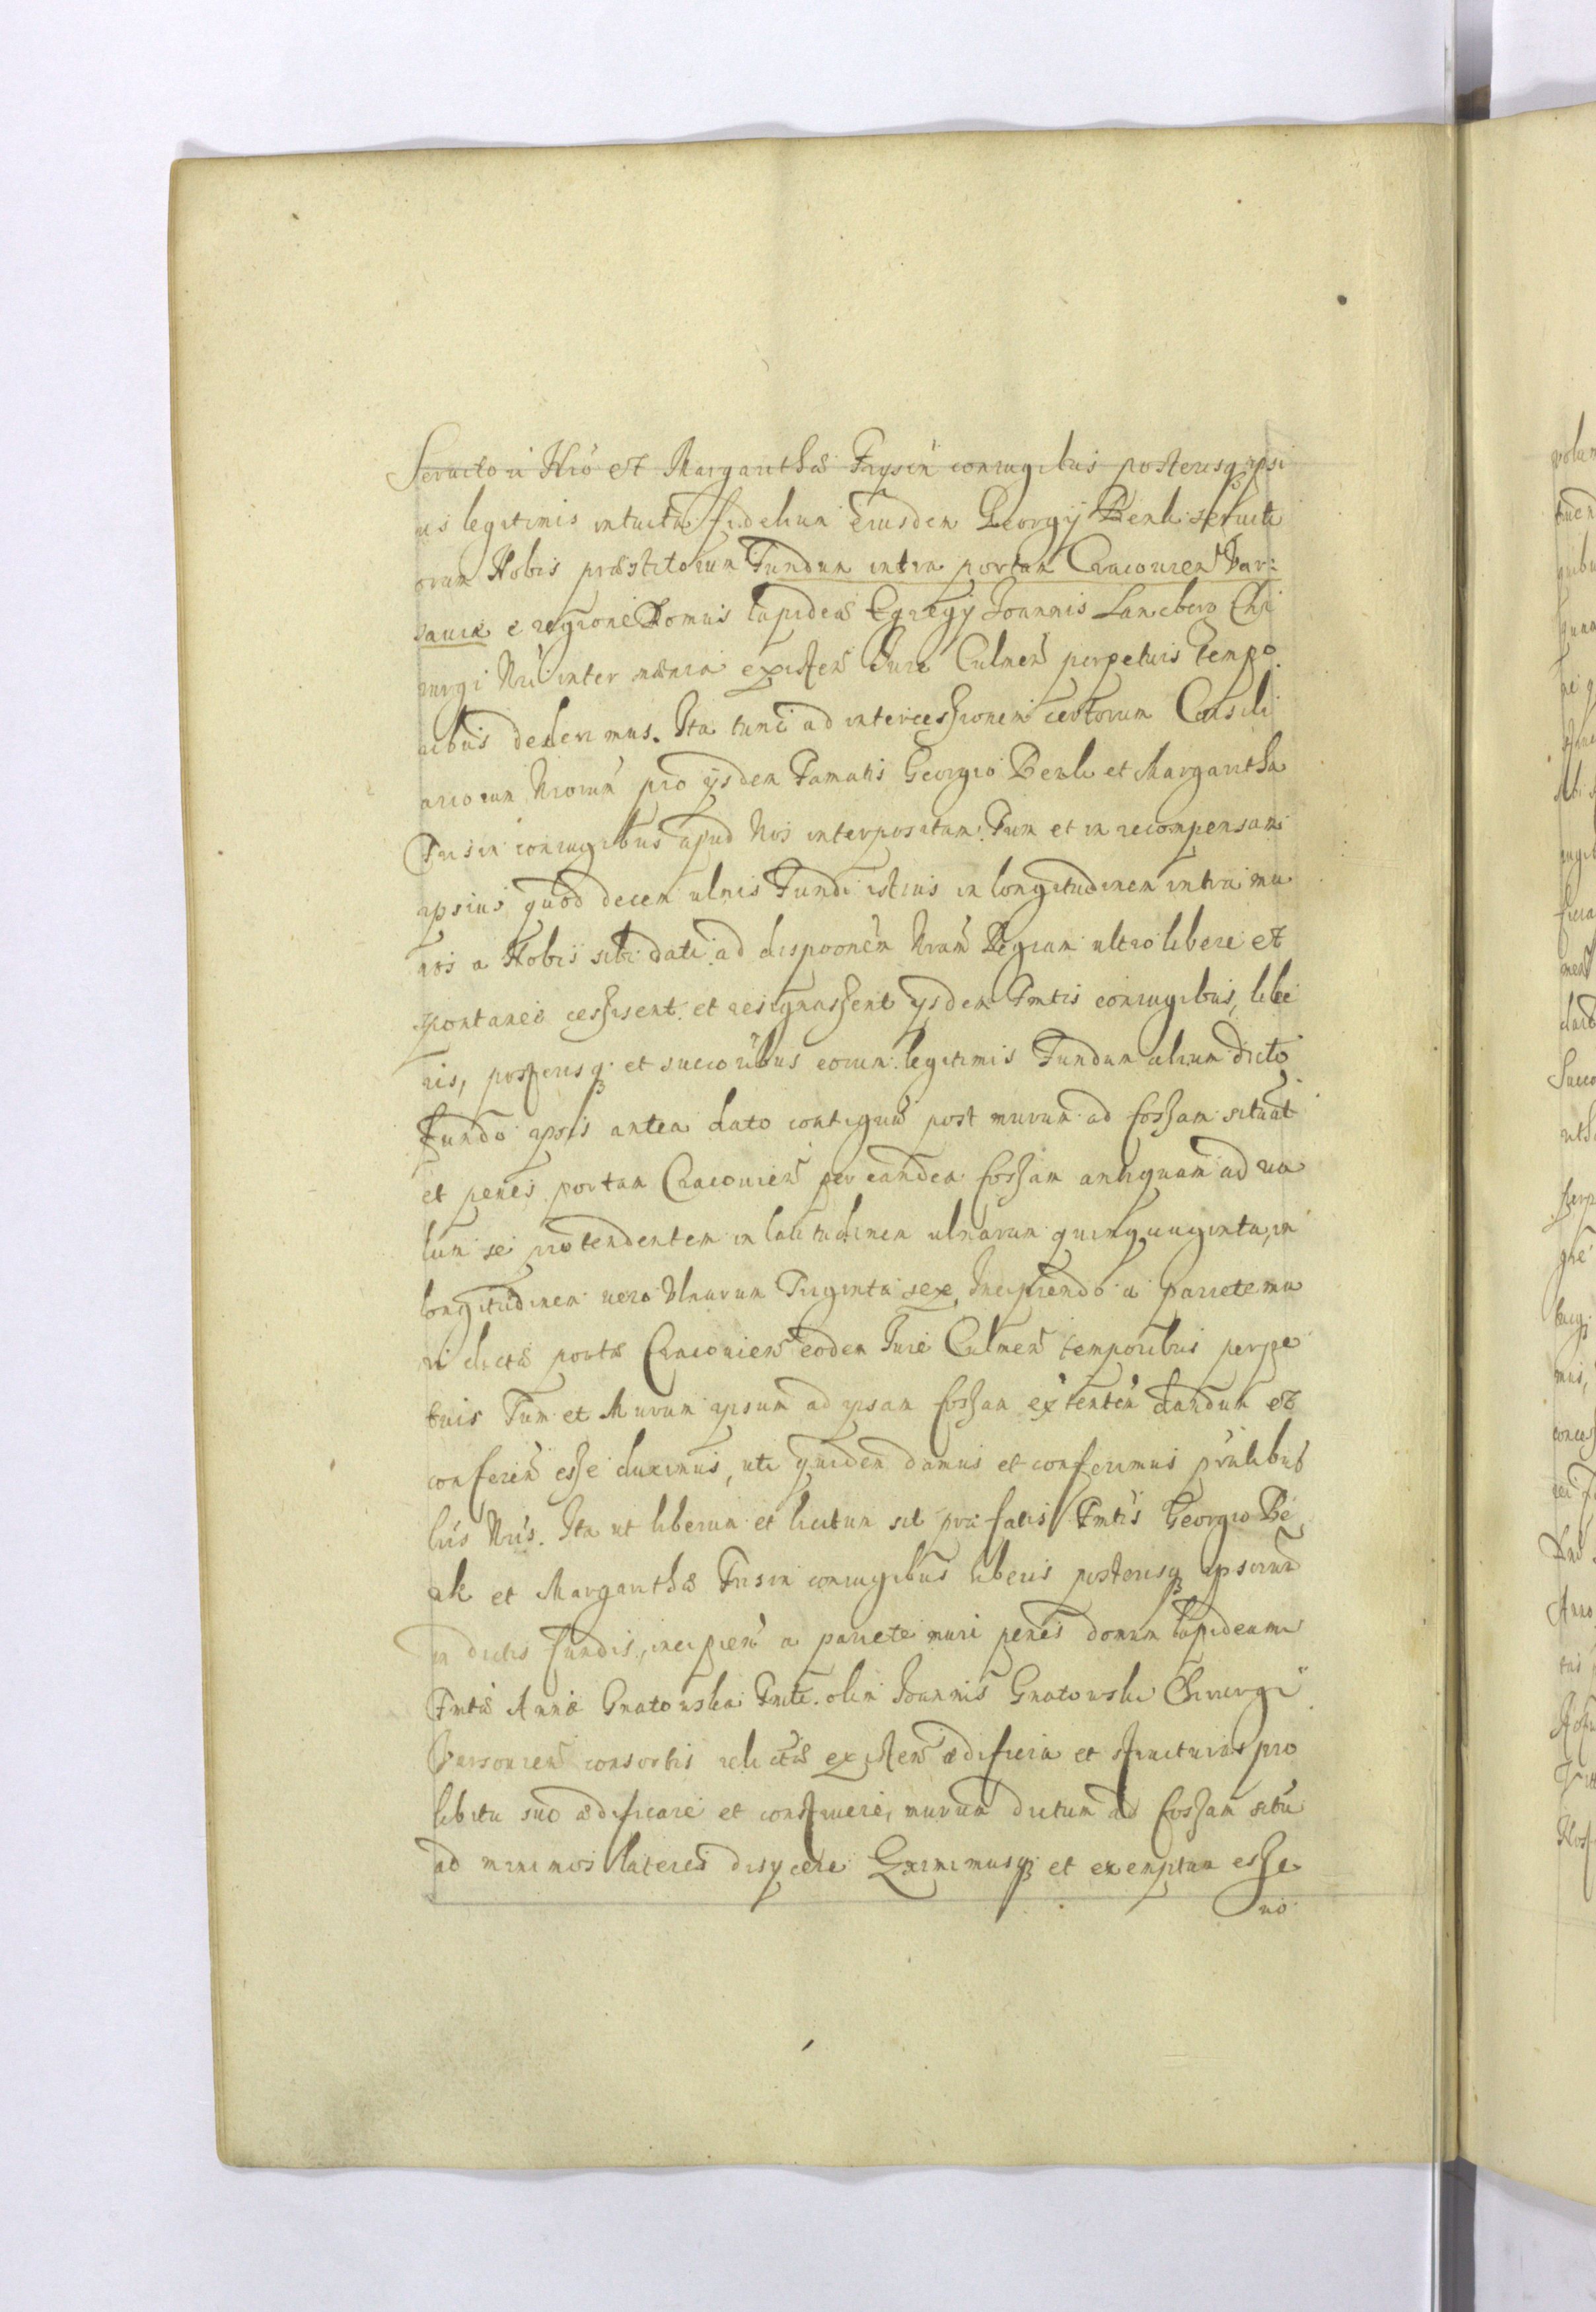 Seruitori Nro et Margarithæ Frysin coniugibus posterisq ipsi
us legitimis intuitu fidelium eiusdem Georgÿ Benk seruiti
orum Nobis præstitorum Fundum intra portam Cracouien Var:
sauiæ e regione Domus lapideæ Egregÿ Joannis Lanckberg Chi
rurgi Nri inter mænia existen Jure Culmen perpetuis tempo
ribus dederimus. Ita tunc ad intercessionem certorum Consili
ariorum Nrorum pro ÿsdem Famatis Georgio Benk et Margaritha
Frisin coniugibus apud Nos interpositam. Tum et in recompensam
ipsius quod decem ulnis Fundi istius in longitudinem intra mu
ros a Nobis sibi dati ad dispoonem Nram Regiam ultro libere et
spontanee cessisent et resignassent ÿsdem Fmtis coniugibus, libe
ris, posterisq et succoribus eorum legitimis Fundum alium dicto
Fundo ipsis antea dato contiguu post murum ad fossam situat
et penes portam Cracouien per eandem fossam antiquam ad ua
lum se protendentem in latitudinem ulnarum quinquaginta, in
longitudinem uero Ulnarum Triginta sex, Incipiendo a pariete mu
ri dictæ portæ Cracouien eodem Jure Culmen temporibus perpe
tuis Tum et Murum ipsum ad ipsam fossam extenten dandum et
conferen esse duximus, uti quidem damus et conferimus prntibus
lris Nris. Ita ut liberum et licitum sit præfatis Fmtis Georgio Be
nk et Margarithæ Frisin coniugibus liberis posterisq ipsorum
in dictis fundis, incipien a pariete muri penes domum lapideam
Fmtæ Annæ Gnatowska Fmti olim Joannis Gnatowski Chirurgi
Varsouien consortis relictæ existen ædificia et structuras pro
libitu suo ædificare et construere, murum dictum ad fossam situ
ad minimos lateres disÿcere Eximimusq et exemptum esse
uo